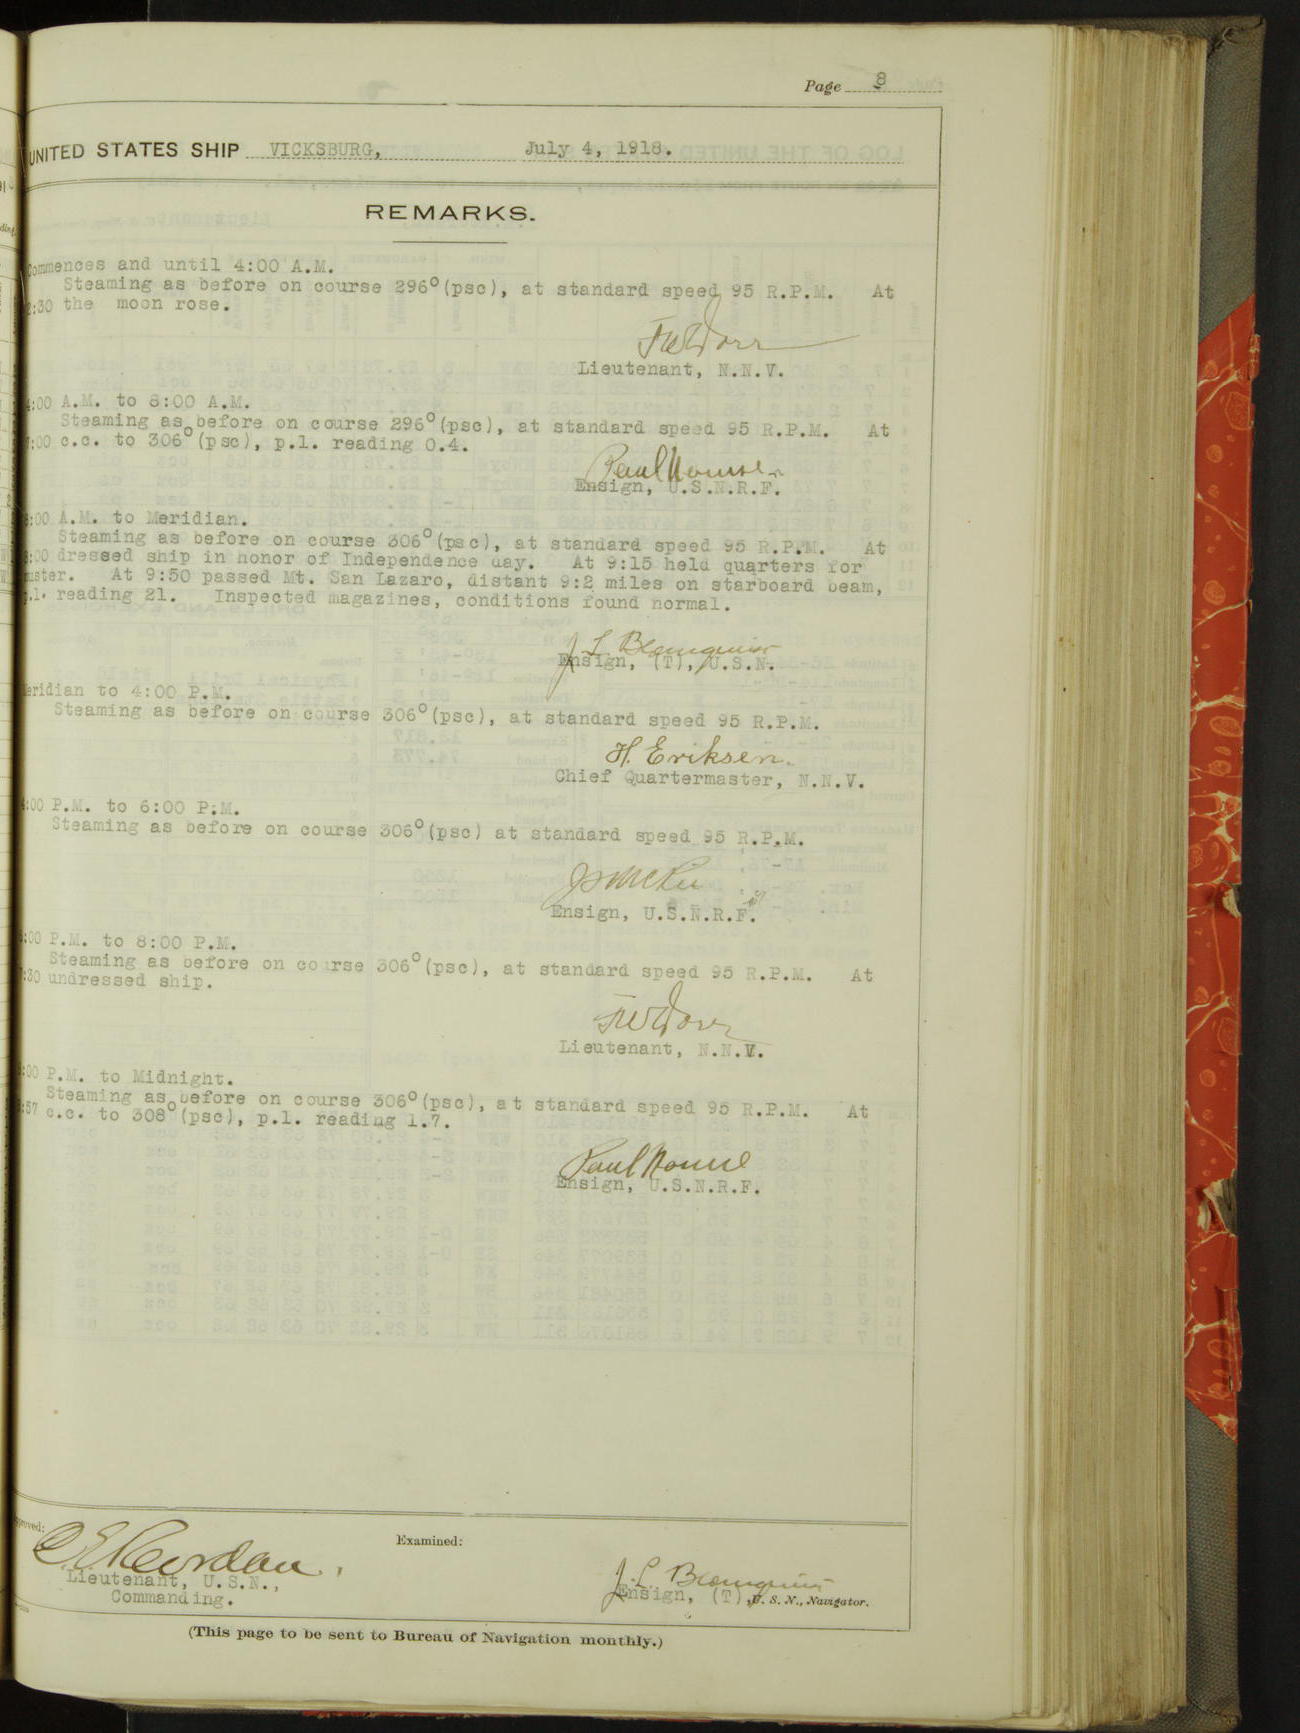 Page 8
UNITED STATES SHIP VICKSBURG, July 4, 1918.
REMARKS.
Commences and until 4:00 A.M.
Steaming as before on course 296°(psc), at standard speed 95 R.P.M. At
2:30 the moon rose.
Lieutenant, N.N.V.
4:00 A.M. to 8:00 A.M.
Steaming as before on course 296°(psc), at standard speed 95 R.P.M. At
7:00 c.c. to 306°(psc), p.l. reading 0.4.
Paul
Ensign, U.S.N.R.F.
8:00 A.M. to Meridian.
Steaming as before on course 306°(psc), at standard speed 95 R.P.M. At
8:00 dressed ship in honor of Independence day. At 9:15 held quarters for
muster. At 9:50 passed Mt. San Lazaro, distant 9:2 miles on starboard beam,
p.l. reading 21. Inspected magazines, conditions found normal.
J L Blomquist
Ensign, (T), U.S.N.
Meridian to 4:00 P.M.
Steaming as before on course 306°(psc), at standard speed 95 R.P.M.
H. Eriksen.
Chief Quartermaster, N.N.V.
4:00 P.M. to 6:00 P:M.
Steaming as before on course 306°(psc) at standard speed 95 R.P.M.
Ensign, U.S.N.R.F.
6:00 P.M. to 8:00 P.M.
Steaming as before on course 306°(psc), at standard speed 95 R.P.M. At
7:30 undressed ship.
Lieutenant, N.N.V.
8:00 P.M. to Midnight.
Steaming as before on course 306°(psc), at standard speed 95 R.P.M. At
:57 c.c. to 308°(psc), p.l. reading 1.7.
Paul
Ensign, U.S.N.R.F.
Approved:
Examined:
Lieutenant, U.S.N.,
Commanding.
J. L. Blomquist
Ensign, (T), U. S. N., Navigator.
(This page to be sent to Bureau of Navigation monthly.)